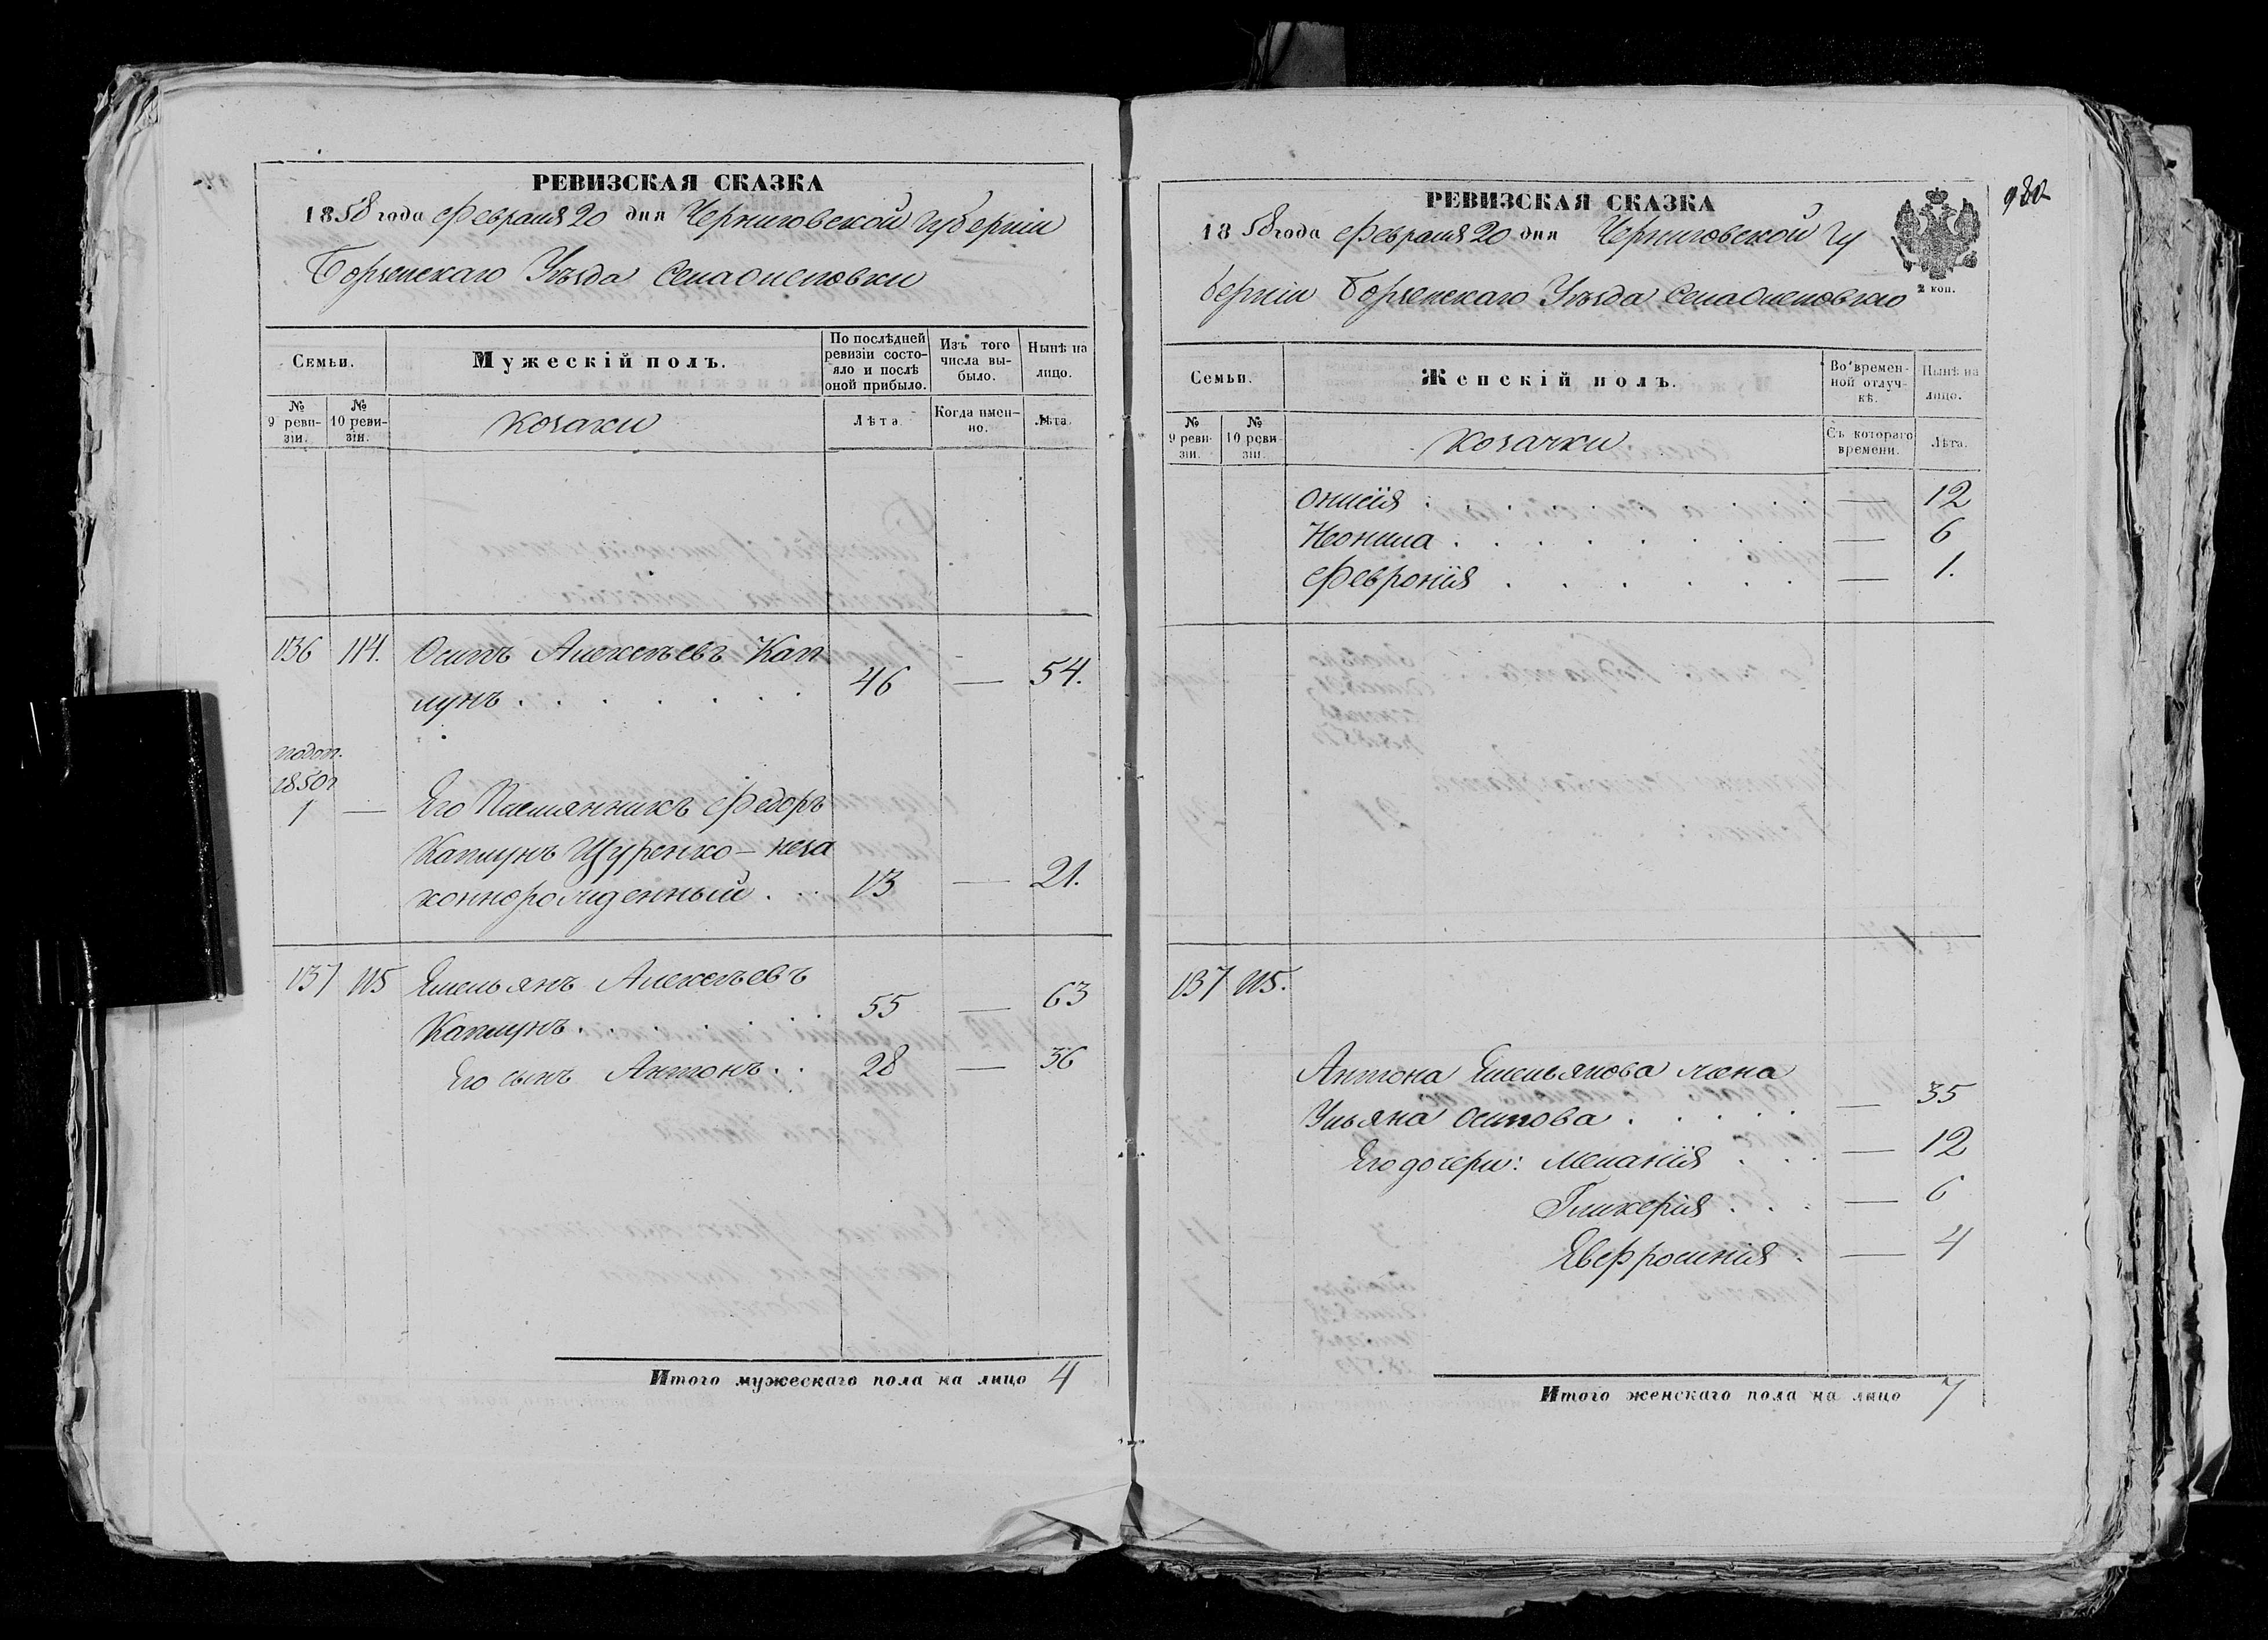 РЕВИЗСКАЯ СКАЗКА
1858 года Февраля 20 дня Черниговской губерніи
Борзенскаго Уѣзда
Семьи.
Мужескій полъ.
По послѣдней ревизіи состояло и послѣ оной прибыло.
Изъ того числа выбыло.
Нынѣ на лицо.
№ 9 ревизіи.
№ 10 ревизіи.
Козаки
Лѣта.
Когда именно.
Лѣта.
136 114. Осипъ Алексѣевъ Кап
лунъ . . . . . . . 46 — 54.
1850г
1 — Его Племянникъ Федоръ
Каплунъ Щуренко – неза
коннорожденный . . . 13 — 21.
137 115 Емельянъ Алексѣевъ
Каплунъ . . . . . . . 55 — 63
Его сынъ Антонъ . . 28 — 36
Итого мужескаго пола на лицо 4
РЕВИЗСКАЯ СКАЗКА
1858 года Февраля 20 дня Черниговской гу
берніи Борзенскаго Уѣзда
2 коп.
Семьи.
Женскій полъ.
Во временной отлучкѣ.
Нынѣ на лицо.
№ 9 ревизіи.
№ 10 ревизіи.
Козачки
Съ котораго времени.
Лѣта.
Онисія . . . . . . . — 12
Неонила . . . . . . . — 6
Февронія . . . . . . — 1.
137 115.
Антона Емельянова жена
Ульяна Осипова . . . . . — 35
Его дочери: Меланія . . . — 12
Гликерія . . . — 6
Евфросинія . — 4
Итого женскаго пола на лицо 7